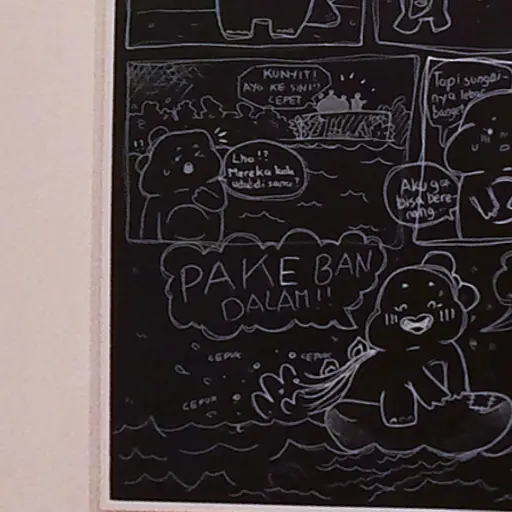 KUNYIT!
AYO KE SINI!
CEPET
Lho!?
Mereka kok
udah di sana?
Tapi sungai-
nya lebar
banget
Aku ga
bisa bere-
nang..
PAKE BAN
DALAM!!
CEPUK
CEPUK
CEPUK